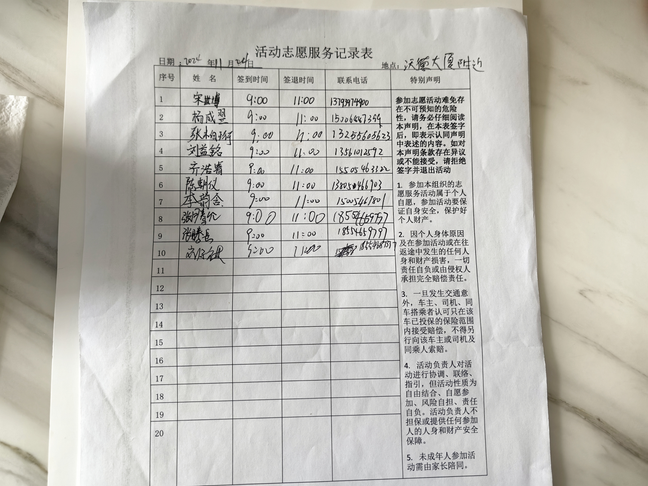 活动志愿服务记录表
日期：2024年11月 日 地点：沃德大厦附近
序号 姓 名 签到时间 签退时间 联系电话 特别声明
1 9:00 11:00
2 杨成翌 9:00 11:00
3 9:00 11:00 13255605623
4 刘益铭 9:00 11:00 13561012592
5 9:00 11:00 15505463122
6 9:00 11:00
7 9:00 11:00 15005467801
8 9:00 11:00
9 9:00 11:00
10 9:00 11:00
11
12
13
14
15
16
17
18
19
20
参加志愿活动难免存
在不可预知的危险
性，请务必仔细阅读
本声明，在本表签字
后，即表示认同声明
中表述的内容。如对
本声明条款存在异议
或不能接受，请拒绝
签字并退出活动
1. 参加本组织的志
愿服务活动属于个人
自愿，参加活动要保
证自身安全，保护好
个人财产。
2. 因个人身体原因
及在参加活动或在往
返途中发生的任何人
身和财产损害，一切
责任自负或由侵权人
承担完全赔偿责任。
3. 一旦发生交通意
外，车主、司机、同
车搭乘者认可只在该
车已投保的保险范围
内接受赔偿，不得另
行向该车主或司机及
同乘人索赔。
4. 活动负责人对活
动进行协调、联络、
指引，但活动性质为
自由结合、自愿参
加、风险自担、责任
自负。活动负责人不
担保或提供任何参加
人的人身和财产安全
保障。
5. 未成年人参加活
动需由家长陪同。